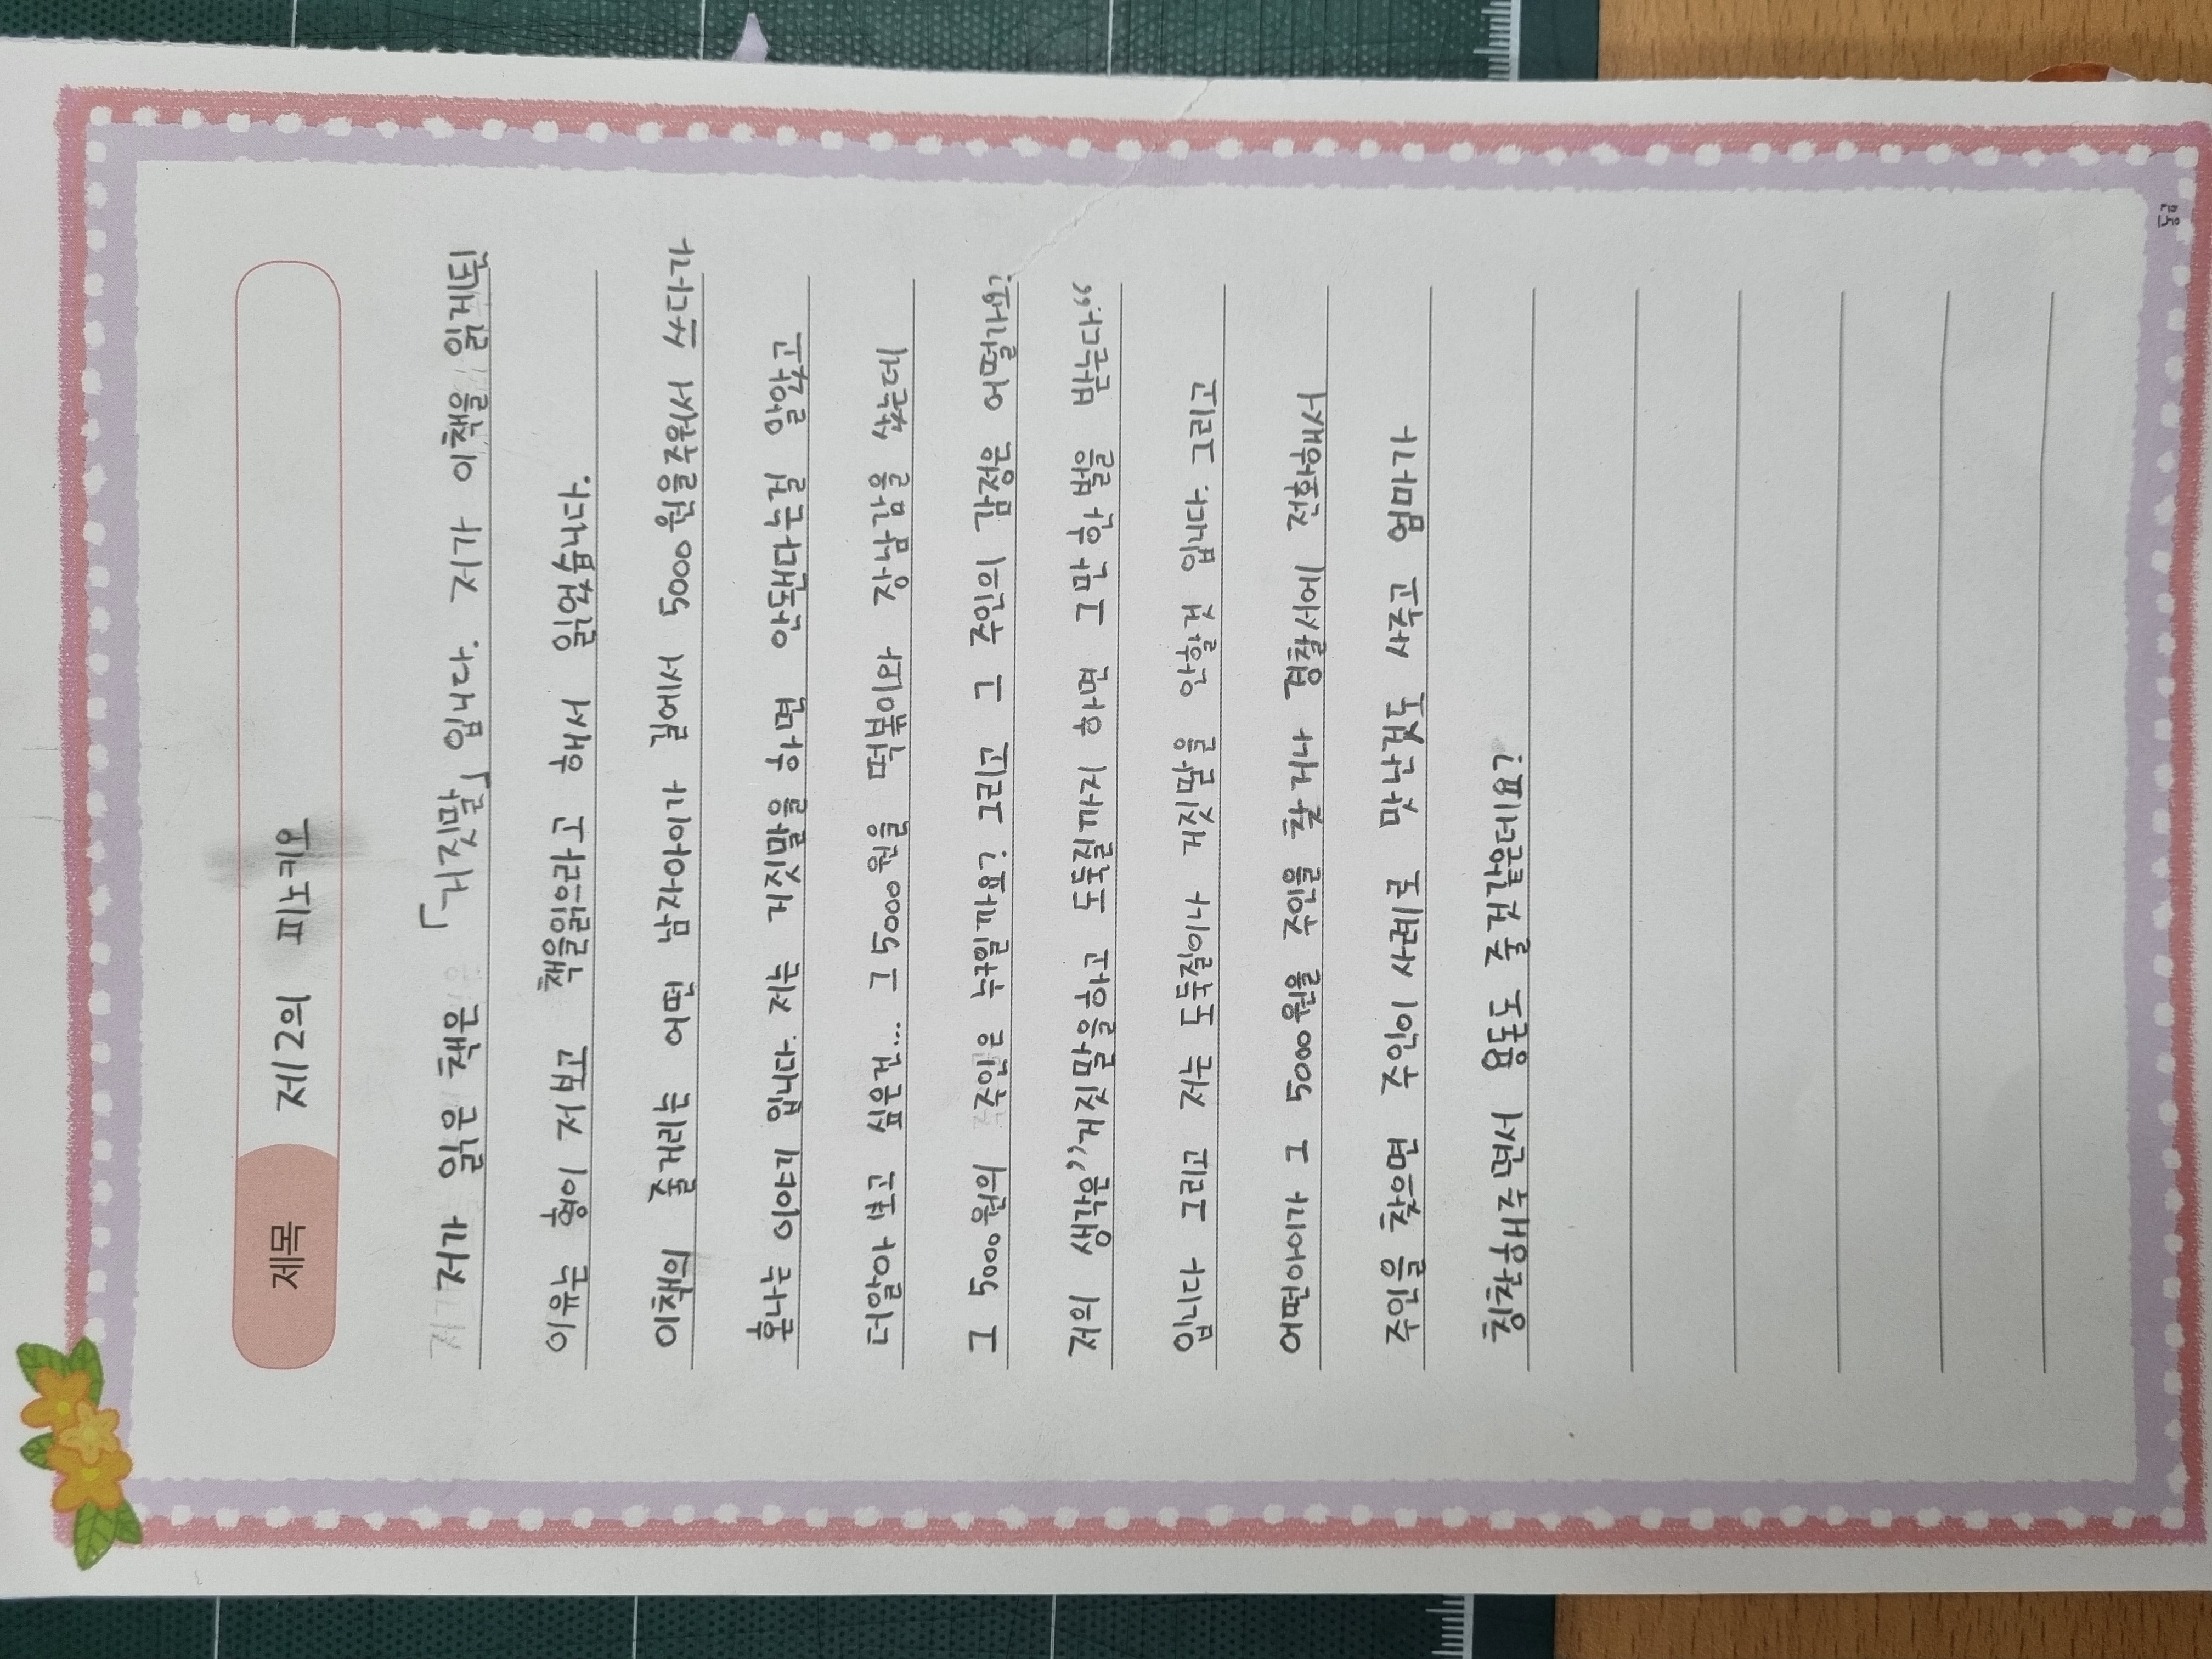 제목 제2의 피노키오
저가 읽은 책은 「거짓말」입니다. 저가 이책을 읽게된
이유는 형이 저보고 책을읽으라고 해서 읽었습니다.
이책의 줄거리는 어떤 남자아이가 길에서 5000원을주워서 쓰다가
혼나는 이야기 입니다. 저는 거짓말을 하면 안됀다는걸 알았고
더알아 보고 싶은건... 그5000원을 떡볶이와 장남감을 샀는데
그 5000원의 주인은 누구일까요? 그리고 그 주인의 감정은 어떨가요?
저의 생각은”거짓말을하고 도둑질까지 하면 그만한벌을 받는다.“
입니다 그리고 저는 도둑질이나 거짓말을 안할것 입니다. 그리고
어떤아이가 그 5000원을 주인을 찾거나 경찰서에 전화해서
주인을 찾으면 주인이 사례로 맛난것도 사주고 엄마가
칭찬해주면서 용돈도 줄것같은데요?